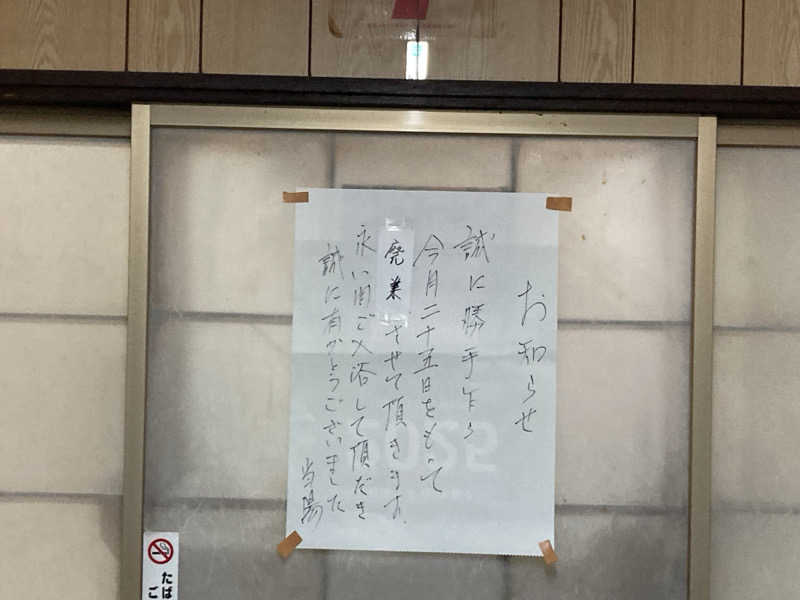 お知らせ
誠に勝手乍ら
今月二十五日をもって
廃業させて頂きます。
永い間ご入浴して頂だき
誠に有がとうございました
当湯
2025
たば
ご